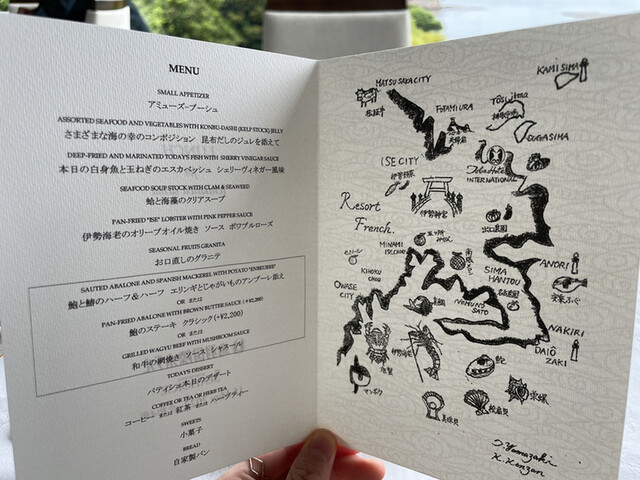 MENU
SMALL APPETIZER
アミューズ-ブーシュ
ASSORTED SEAFOOD AND VEGETABLES WITH KONBU-DASHI (KELP STOCK) JELLY
さまざまな海の幸のコンポジション 昆布だしのジュレを添えて
DEEP-FRIED AND MARINATED TODAY'S FISH WITH SHERRY VINEGAR SAUCE
本日の白身魚と玉ねぎのエスカベッシュ シェリーヴィネガー風味
SEAFOOD SOUP STOCK WITH CLAM & SEAWEED
蛤と海藻のクリアスープ
PAN-FRIED "ISE" LOBSTER WITH PINK PEPPER SAUCE
伊勢海老のオリーブオイル焼き ソース ポワブルローズ
SEASONAL FRUITS GRANITA
お口直しのグラニテ
SAUTED ABALONE AND SPANISH MACKEREL WITH POTATO
鮑と鰆のハーフ&ハーフ エリンギとじゃがいものアンブーレ添え
OR または
PAN-FRIED ABALONE WITH BROWN BUTTER SAUCE (+¥2,200)
鮑のステーキ クラシック(+¥2,200)
OR または
GRILLED WAGYU BEEF WITH MUSHROOM SAUCE
和牛の網焼き ソース シャスール
TODAY'S DESSERT
パティシエ本日のデザート
COFFEE OR TEA OR HERB TEA
コーヒー または 紅茶 または ハーブティー
SWEETS
小菓子
BREAD
自家製パン
MATSUSAKA CITY
松阪牛
FUTAMI URA
夫婦岩
TOSijima
KAMISIMA
SUGASIMA
ISE CITY
Toba Hotel
INTERNATIONAL
伊勢神宮
Resort
French.
MINAMI
ISE CHOU
KIHOKU
CHOU
OWASE
CITY
SIMA
HANTOU
NEMUNO
SATO
ANORI
安乗ふぐ
NAKIRI
DAIÔ
ZAKI
伊勢海老
鮑
マンボウ
真珠貝